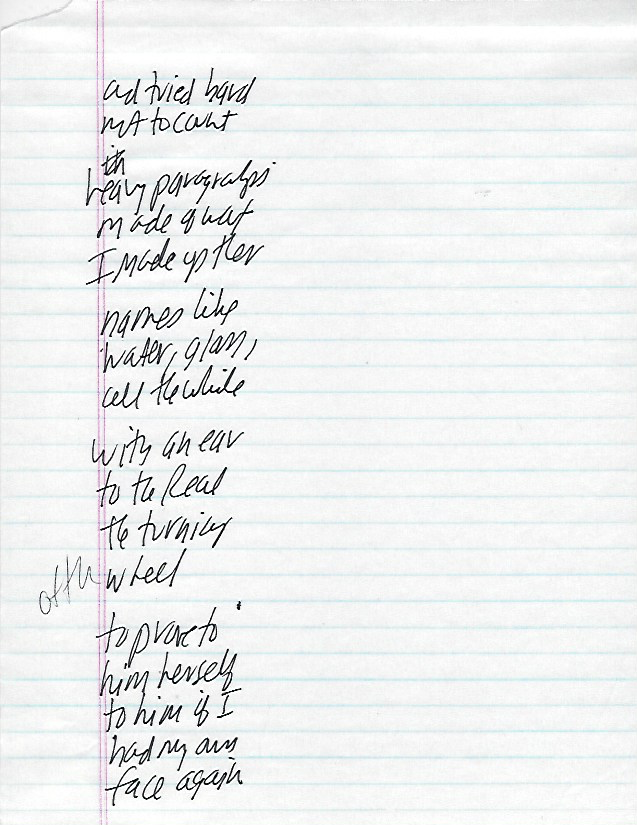 and tried hard
not to count
in
heavy paragraphs
made
I made up their
names like
water, glass,
all the while
with an ear
to the Real
the turning
of the wheel
to prove to
him herself
to him if I
had my own
face again